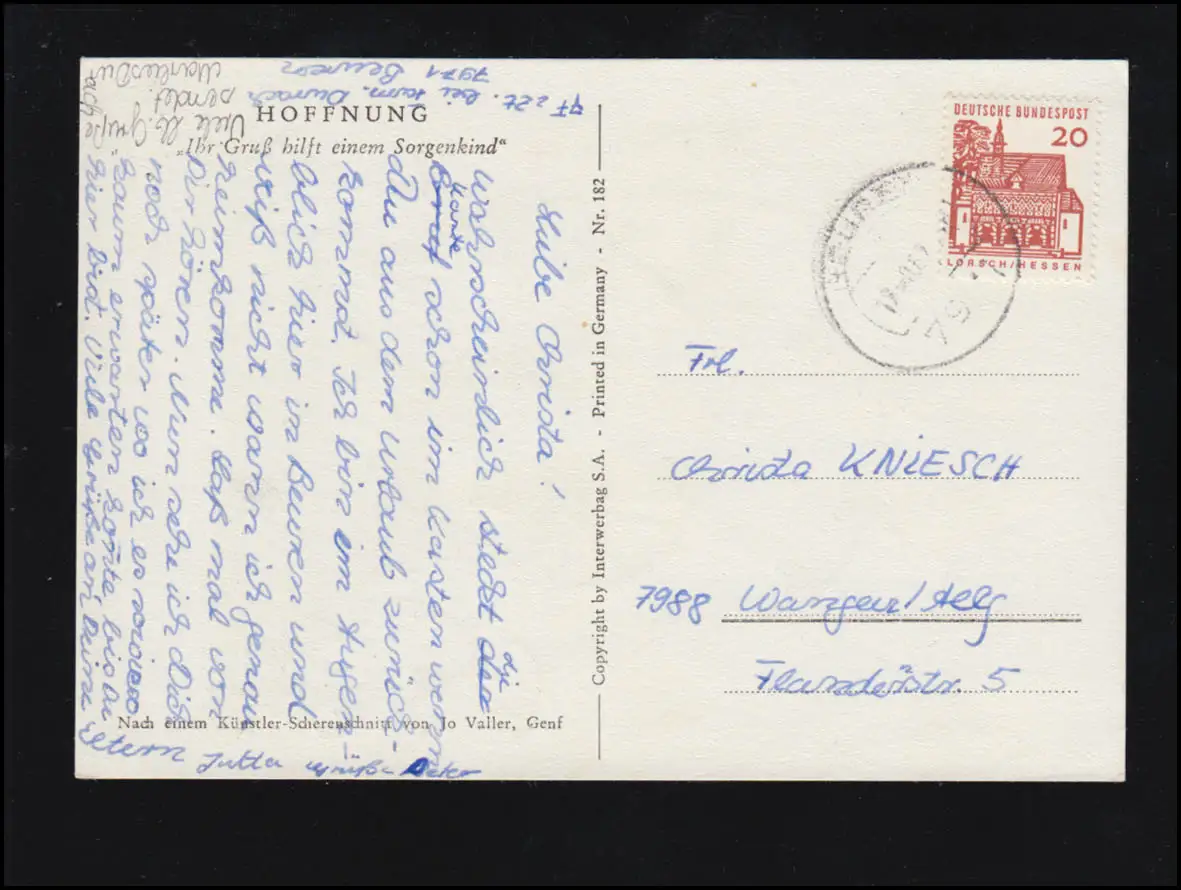 HOFFNUNG
„Ihr Gruß hilft einem Sorgenkind“
Liebe Christa!
Wahrscheinlich steckt die
Karte schon im Kasten wenn
Du aus dem Urlaub zurück-
kommst. Ich bin im Augen-
blick hier in Beuren und
weiß nicht wann ich genau
heimkomme. Laß mal von
Dir hören. Nun sehe ich Dich
noch später wo ich es sowieso
kaum erwarten konte, bis Du
hier bist. Viele Grüße an Deine
Eltern Jutta
Viele lb. Grüße
sendet
z. Zt. bei Fam. Durach
7971 Beuren
Nach einem Künstler-Scherenschnitt von Jo Valler, Genf
Copyright by Interwerbag S.A. - Printed in Germany - Nr. 182
DEUTSCHE BUNDESPOST
20
LORSCH/HESSEN
Frl.
Christa KNIESCH
7988 Wangen/Allg
Flanderstr. 5